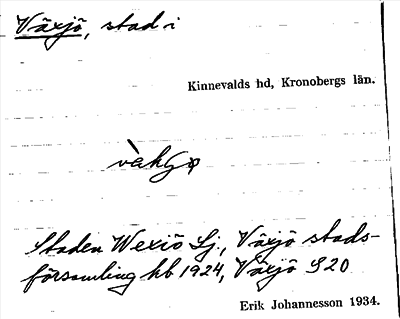 Växjö, stad i
Kinnevalds hd, Kronobergs län.
Staden Wexiö Lj., Växjö stads-
församling hb 1924, Växjö S20
Erik Johannesson 1934.